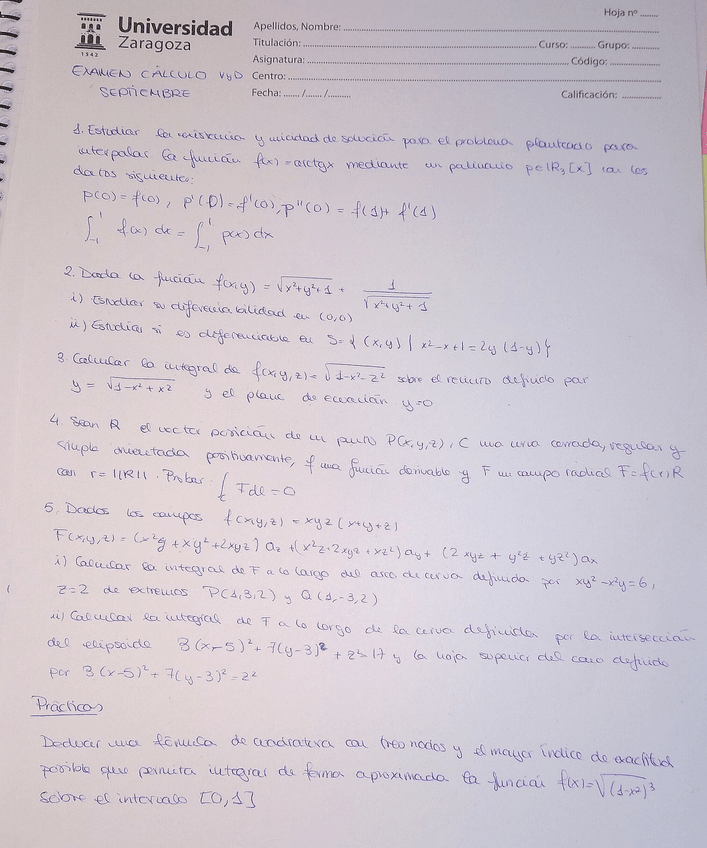 Hoja nº ........
Universidad
Zaragoza
1542
Apellidos, Nombre:
Titulación: Curso: Grupo:
Asignatura: Código:
Centro:
Fecha: ....../....../.........
Calificación:
EXAMEN CÁLCULO VyD
SEPTIEMBRE
1. Estudiar la existencia y unicidad de solución para el problema planteado para
interpolar la función f(x) = arctgx mediante un polinomio p∈ℝ₃[x] con los
datos siguientes:
p(0) = f(0), p'(0) = f'(0), p''(0) = f(1) + f'(1)
∫₋₁¹ f(x) dx = ∫₋₁¹ p(x) dx
2. Dada la función f(x,y) = √(x²+y²+1) + 1/√(x²+y²+1)
i) Estudiar su diferenciabilidad en (0,0)
ii) Estudiar si es diferenciable en S = { (x,y) | x²-x+1 = 2y (1-y) }
3. Calcular la integral de f(x,y,z) = √(1-x²-z²) sobre el recinto definido por
y = √(1-x²+x²) y el plano de ecuación y=0
4. Sean R el vector posición de un punto P(x,y,z), C una curva cerrada, regular y
simple orientada positivamente, f una función derivable y F un campo radial F = f(r)R
con r = ||R||. Probar: ∫c Fdl = 0
5. Dados los campos f(x,y,z) = xyz (x+y+z)
F(x,y,z) = (x²y + xy² + 2xyz) az + (x²z + 2xyz + xz²) ay + (2xyz + y²z + yz²) ax
i) Calcular la integral de F a lo largo del arco de curva definida por xy²-x²y = 6,
z=2 de extremos P(1,3,2) y Q(1,-3,2)
ii) Calcular la integral de F a lo largo de la curva definida por la intersección
del elipsoide 3(x-5)² + 7(y-3)² + z² = 17 y la hoja superior del cono definido
por 3(x-5)² + 7(y-3)² = z²
Prácticas
Deducir una fórmula de cuadratura con tres nodos y el mayor índice de exactitud
posible que permita integrar de forma aproximada la función f(x) = √(1-x²)³
sobre el intervalo [0,1]